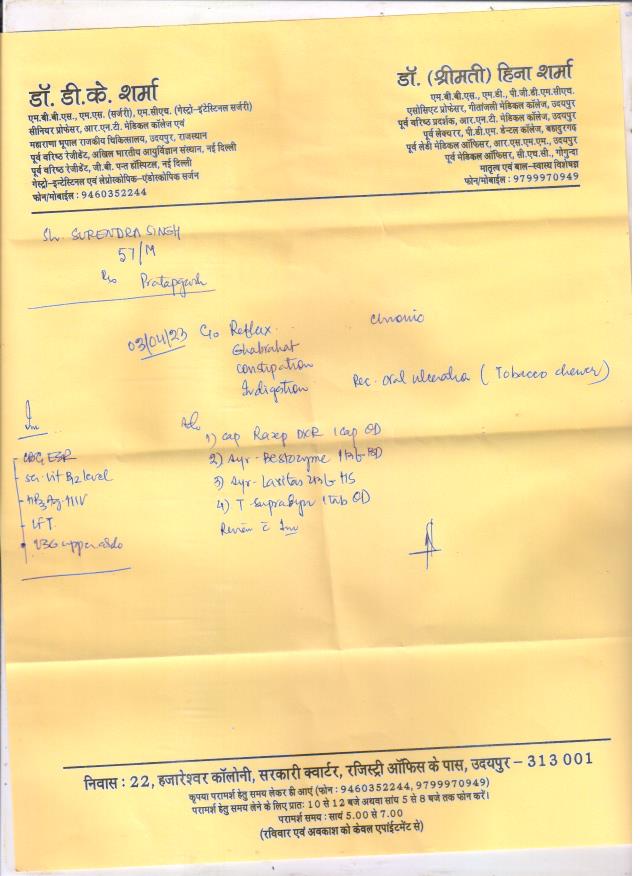 डॉ. डी.के. शर्मा
एम.बी.बी.एस., एम.एस. (सर्जरी), एम.सीएच. (गेस्ट्रो-इंटेस्टिनल सर्जरी)
सीनियर प्रोफेसर, आर.एन.टी. मेडिकल कॉलेज एवं
महाराणा भूपाल राजकीय चिकित्सालय, उदयपुर, राजस्थान
पूर्व वरिष्ठ रेजीडेंट, अखिल भारतीय आयुर्विज्ञान संस्थान, नई दिल्ली
पूर्व वरिष्ठ रेजीडेंट, जी.बी. पन्त हॉस्पिटल, नई दिल्ली
गेस्ट्रो-इन्टेस्टिनल एवं लेप्रोस्कोपिक-एंडोस्कोपिक सर्जन
फोन/मोबाईल : 9460352244
डॉ. (श्रीमती) हिना शर्मा
एम.बी.बी.एस., एम.डी., पी.जी.डी.एम.सीएच.
एसोसिएट प्रोफेसर, गीतांजली मेडिकल कॉलेज, उदयपुर
पूर्व वरिष्ठ प्रदर्शक, आर.एन.टी. मेडिकल कॉलेज, उदयपुर
पूर्व लेक्चरर, पी.डी.एम. डेन्टल कॉलेज, बहादुरगढ़
पूर्व लेडी मेडिकल ऑफिसर, आर.एस.एम.एम., उदयपुर
पूर्व मेडिकल ऑफिसर, सी.एच.सी., गोगुन्दा
मातृत्व एवं बाल-स्वास्थ्य विशेषज्ञ
फोन/मोबाईल : 9799970949
Sh. SURENDRA SINGH
57/M
R/o Pratapgarh
03/04/23 C/o Reflux chronic
Ghabrahat
Constipation
Indigestion Rec. oral ulceration (Tobacco chewer)
Inv
CBC, ESR
Ser. Vit B12 level
LFT
USG upper abdo
Adv
1) Cap Razep DXR 1 cap OD
2) Syr- Bestozyme 1 tsf BD
3) Syr- Laxitas 2 tsf HS
4) T- 1 tab OD
Review c̄ Inv
निवास : 22, हजारेश्वर कॉलोनी, सरकारी क्वार्टर, रजिस्ट्री ऑफिस के पास, उदयपुर – 313 001
कृपया परामर्श हेतु समय लेकर ही आएं (फोन : 9460352244, 9799970949)
परामर्श हेतु समय लेने के लिए प्रातः 10 से 12 बजे अथवा सांय 5 से 8 बजे तक फोन करें।
परामर्श समय : सायं 5.00 से 7.00
(रविवार एवं अवकाश को केवल एपांईटमेंट से)